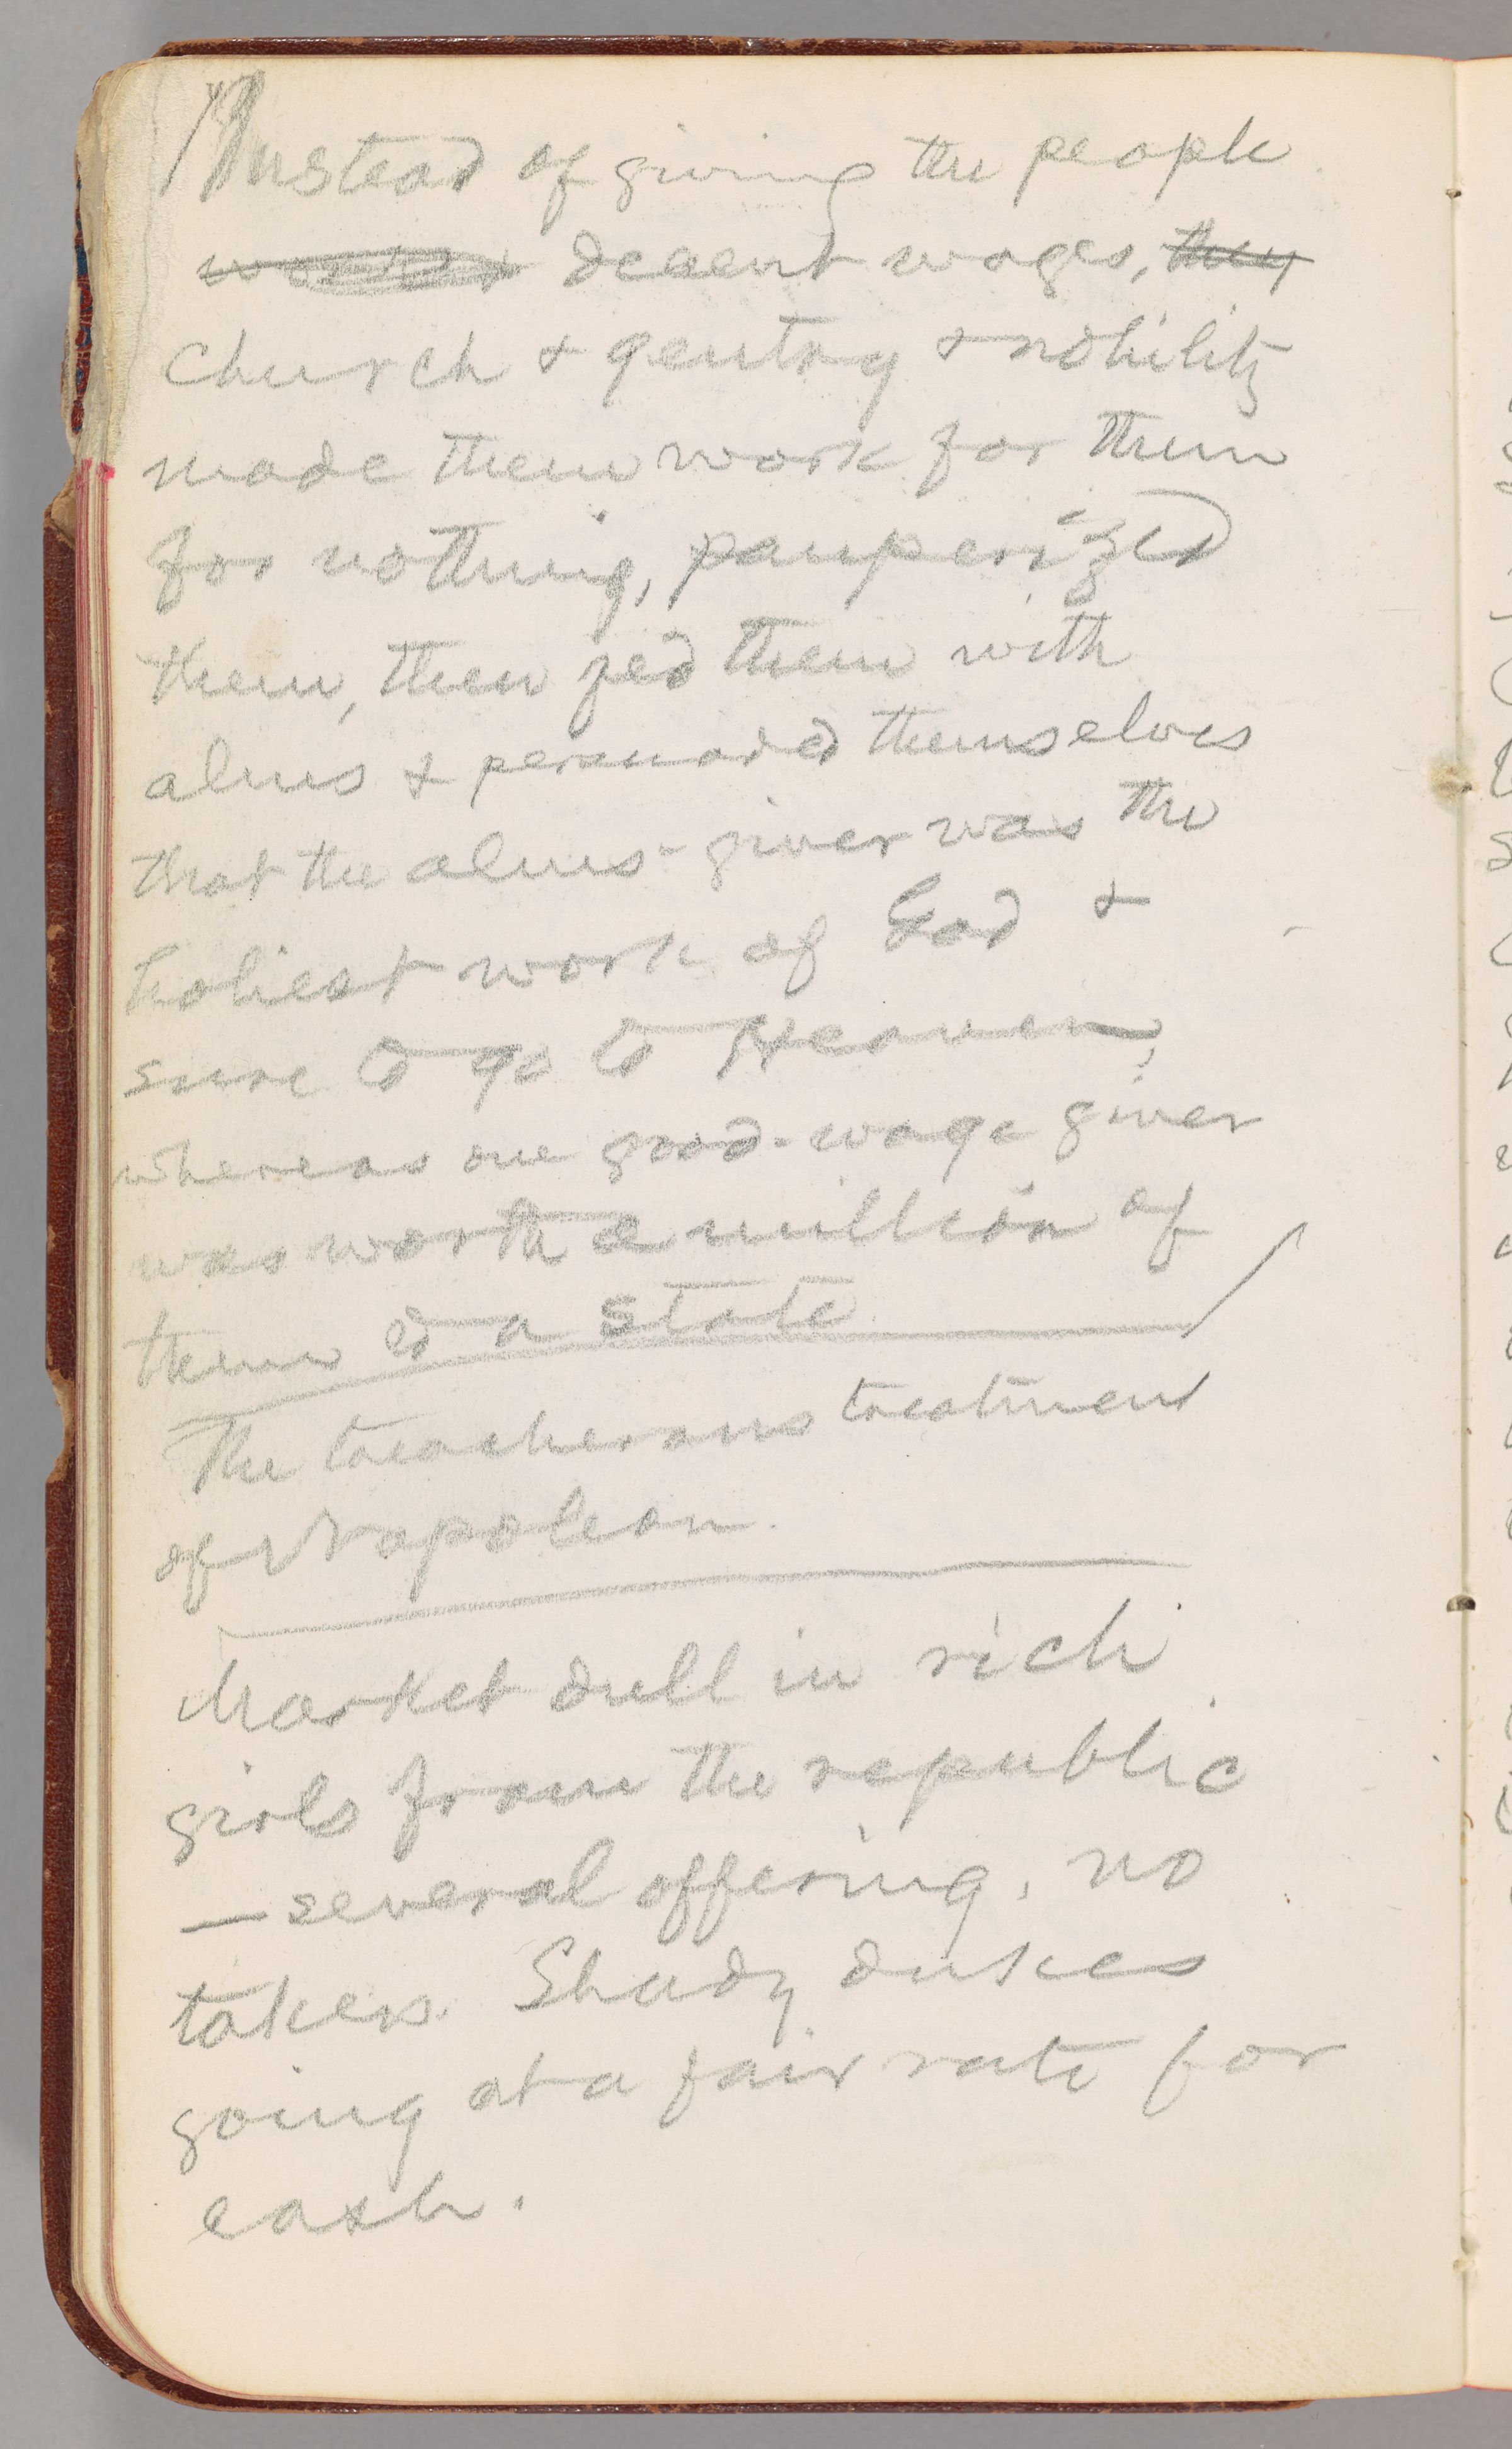 Instead of giving the people
decent wages, they
church & gentry & nobility
made them work for them
for nothing, pauperized
them, then fed them with
alms & persuaded themselves
that the alms-giver was the
holiest work of God &
sure to go to Heaven,
whereas one good-wage giver
was worth a million of
them to a state.
The treacherous treatment
of Napoleon.
Market dull in rich
girls from the republic
— several offering, no
takers. Shady dukes
going at a fair rate for
cash.